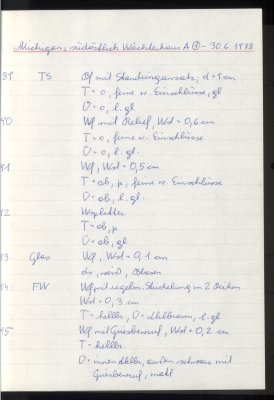 Michigan, südöstlich Wächterhaus A ① - 30.6.1978
89 TS Bf mit Standringansatz, d = 9 cm
T = o, feine w. Einschlüsse, gl
Ü = o, l. gl.
90 Wf mit Relief, Wst = 0,6 cm
T = o, feine w. Einschlüsse
Ü = o, l. gl.
91 Wf, Wst = 0,5 cm
T = ob, k, feine w. Einschlüsse
Ü = ob, l. gl.
92 Wsplitter
T = ob, k
Ü = ob, gl
93 Glas Wf, Wst = 0,1 cm
ds, weiß, Blasen
94 FW Wf mit regelm. Strichelung in 2 Reihen
Wst = 0,3 cm
T = hellbr, Ü = dklbraun, l. gl
95 Wf mit Griesbewurf, Wst = 0,2 cm
T = hellbr.
Ü = innen dklbr, außen schwarz mit
Griesbewurf, matt